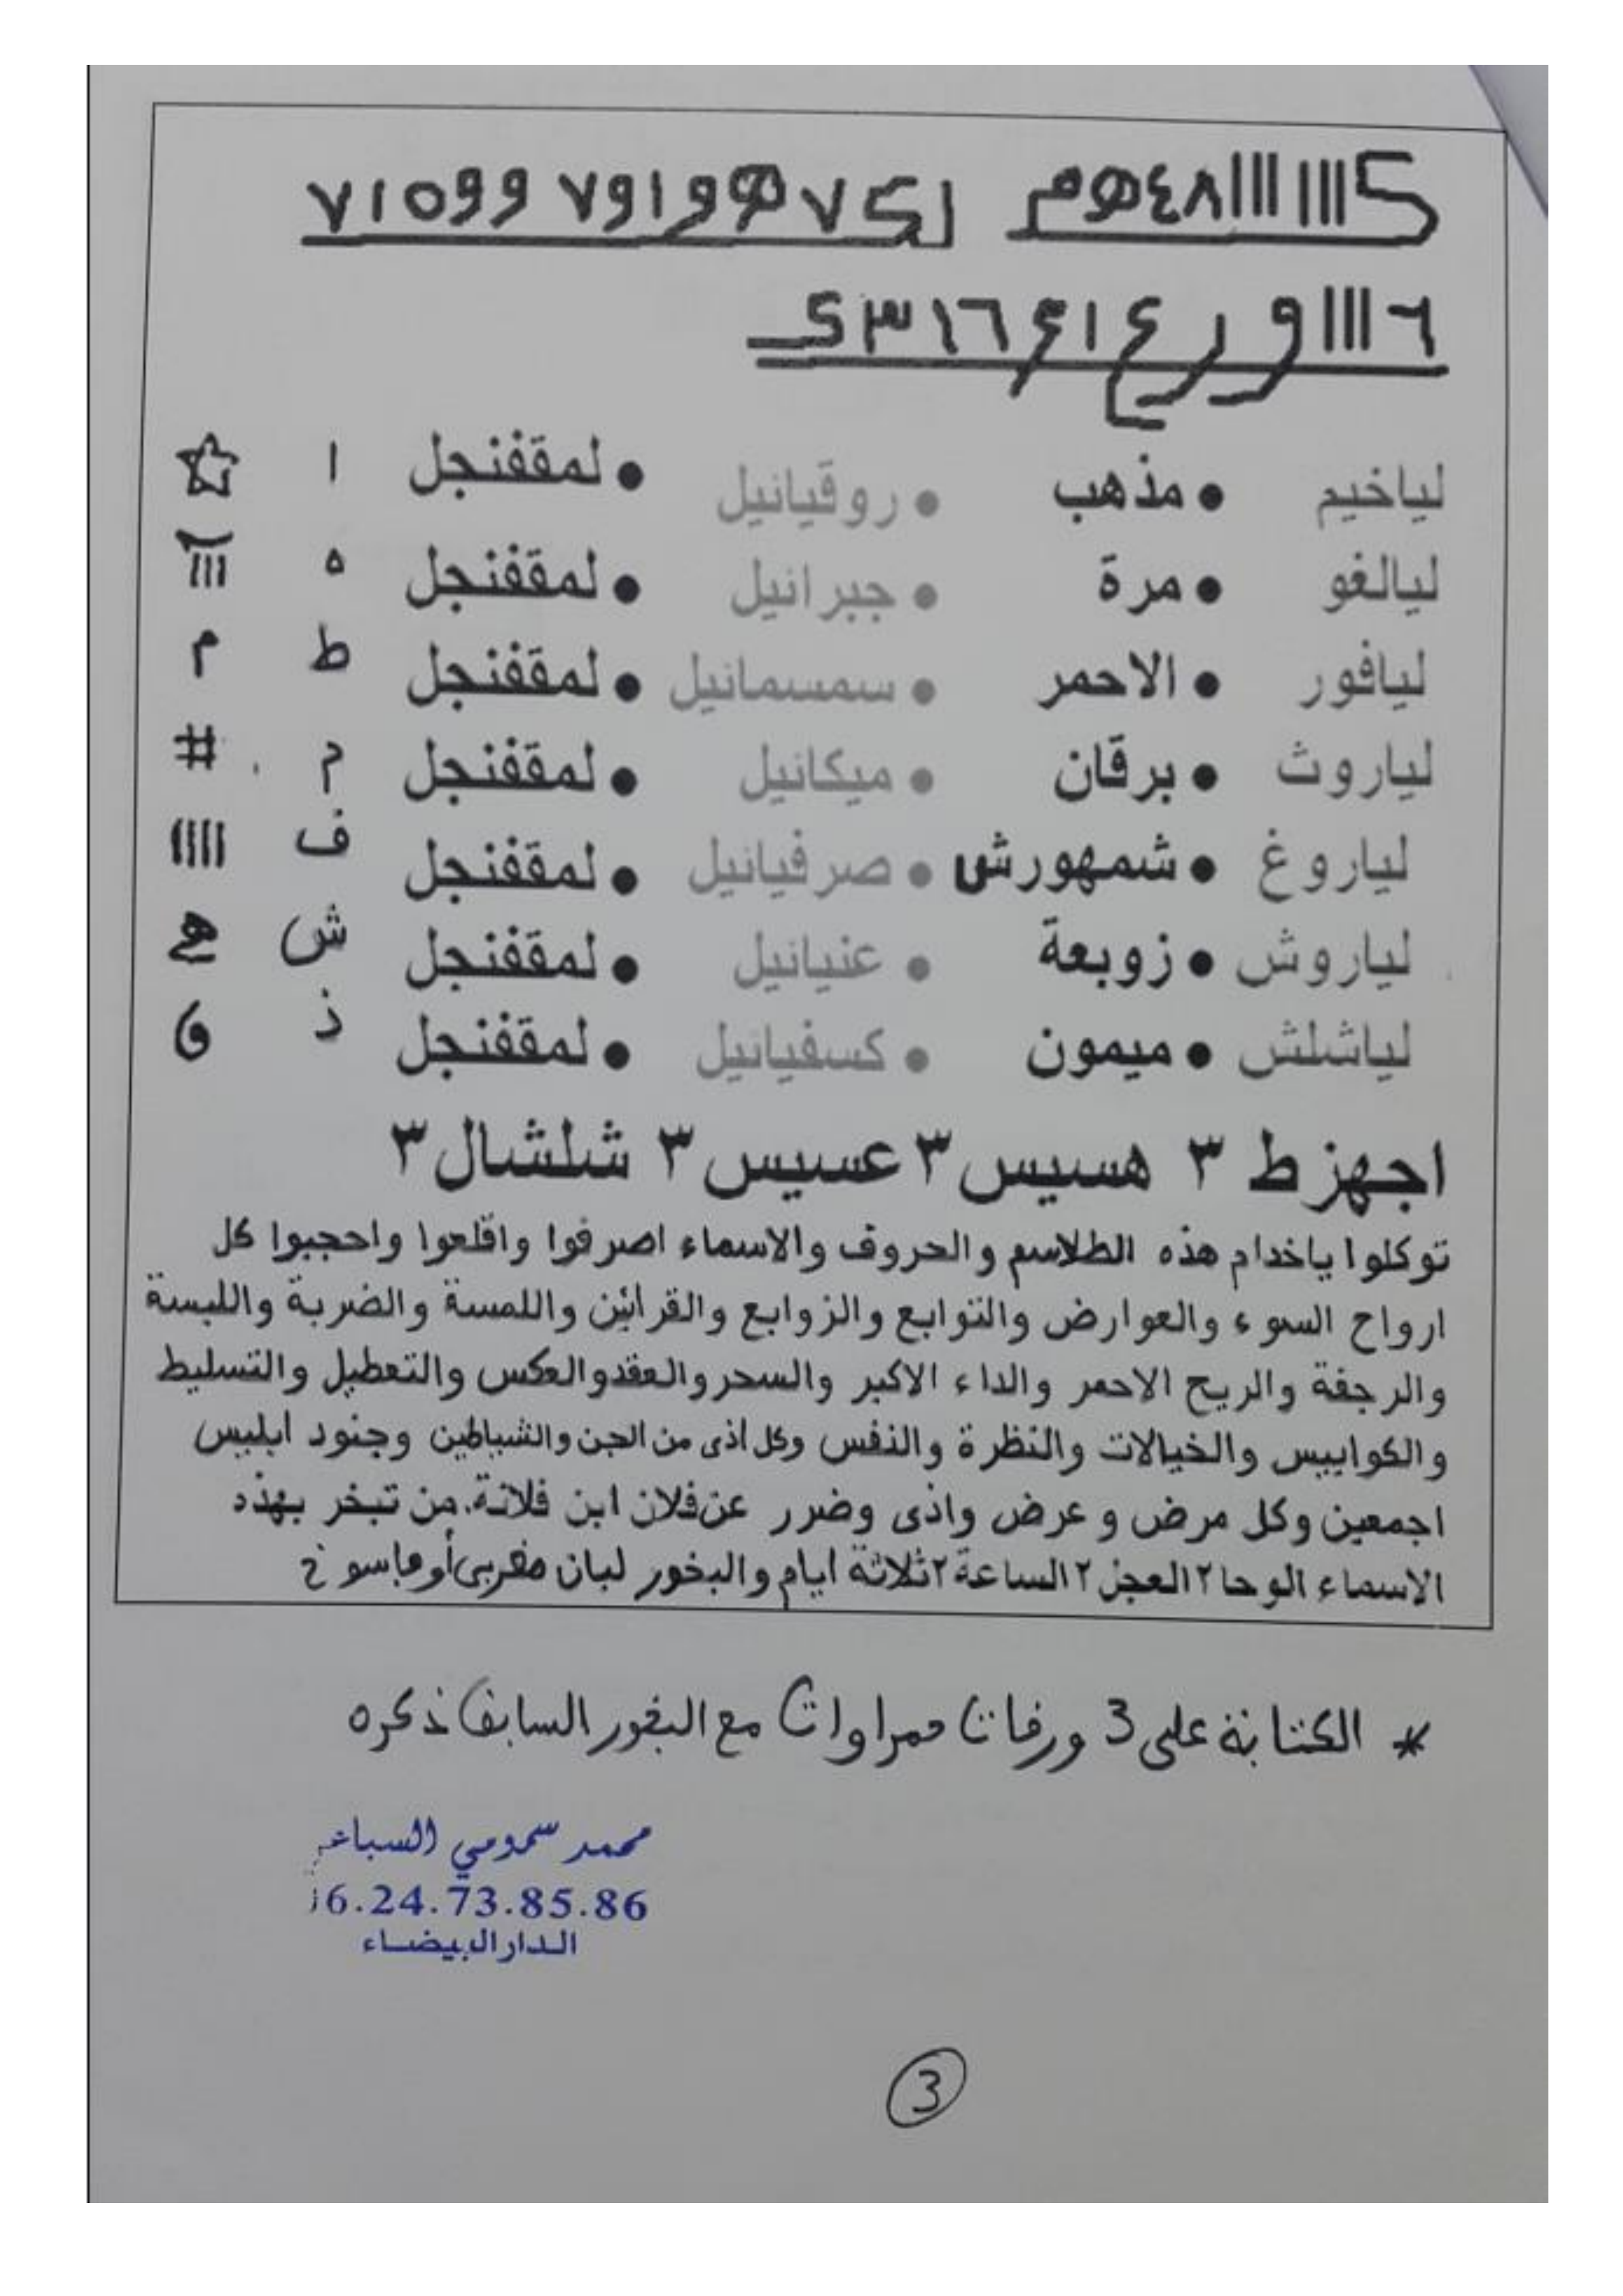 ك١١١ ١١١٨٤هم
لك٧هو١و٧ وو٧١٥
٦ ١١١ و ر ع ١ ع ١٦ ٣ ك
لياخيم • مذهب • روقيانيل • لمقفنجل ا ☆
ليالغو • مرة • جبرانيل • لمقفنجل ه
ليافور • الاحمر • سمسمانيل • لمقفنجل ط م
لياروث • برقان • ميكانيل • لمقفنجل م #
لياروغ • شمهورش • صرفيانيل • لمقفنجل ف ||||
لياروش • زوبعة • عنيانيل • لمقفنجل ش
لياشلش • ميمون • كسفيانيل • لمقفنجل ذ
اجهزط ٣ هسيس ٣ عسيس ٣ شلشال ٣
توكلوا ياخدام هذه الطلاسم والحروف والاسماء اصرفوا واقلعوا واحجبوا كل
ارواح السوء والعوارض والتوابع والزوابع والقرائين واللمسة والضربة واللبسة
والرجفة والريح الاحمر والداء الاكبر والسحر والعقد والعكس والتعطيل والتسليط
والكوابيس والخيالات والنظرة والنفس وكل اذى من الجن والشياطين وجنود ابليس
اجمعين وكل مرض و عرض واذى وضرر عن فلان ابن فلانة. من تبخر بهذه
الاسماء الوحا٢ العجل٢ الساعة٢ ثلاثة ايام والبخور لبان مغربي أو جاسوخ
* الكتابة على 3 ورقات حمراوات مع البخور السابق ذكره
محمد سمومي السباعي
6.24.73.85.86
الدار البيضاء
3